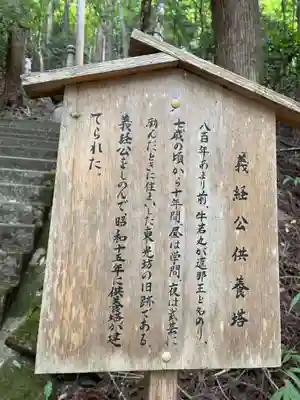 義経公供養塔
八百年あまり前、牛若丸が遮那王となのり、
七歳の頃から十年間、昼は学問、夜は武芸に
励んだときに住まいした東光坊の旧跡である。
義経公をしのんで昭和十五年に供養塔が建
てられた。